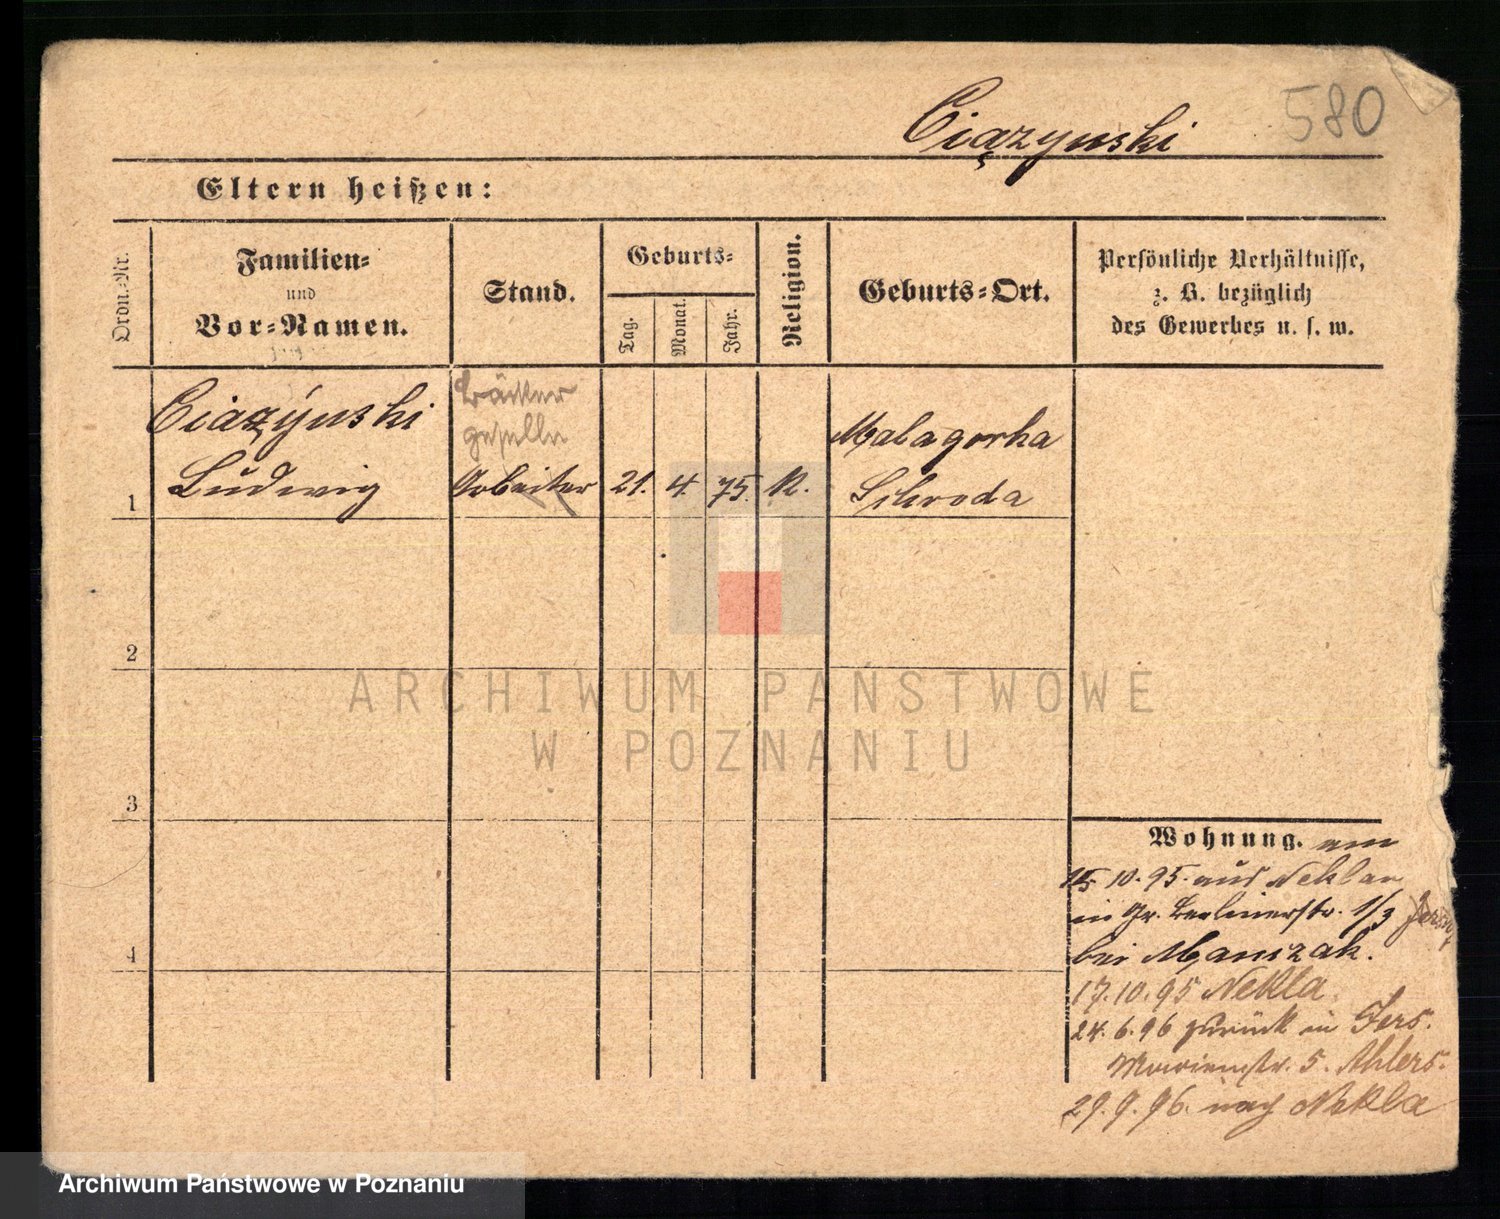 580
Ciązynski
Eltern heißen:
Ordn.-Nr.
Familien-
und
Vor-Namen.
Stand.
Geburts-
Tag.
Monat.
Jahr.
Religion.
Geburts-Ort.
Persönliche Verhältnisse,
z. B. bezüglich
des Gewerbes u. s. w.
Ciązynski
Ludwig
Bäcker
geselle
Arbeiter
21. 4. 75. K.
Malagorka
Schroda
1
2
3
4
Wohnung. am
15 10. 95. aus Neklar
in Gr. Berlinerstr. 1/3
bei Mamzak.
17. 10. 95 Nekla.
24. 6. 96 zurück in Jers.
Marienstr. 5. Ahlers.
29. 9. 96. nach Nekla
ARCHIWUM PAŃSTWOWE
W POZNANIU
Archiwum Państwowe w Poznaniu